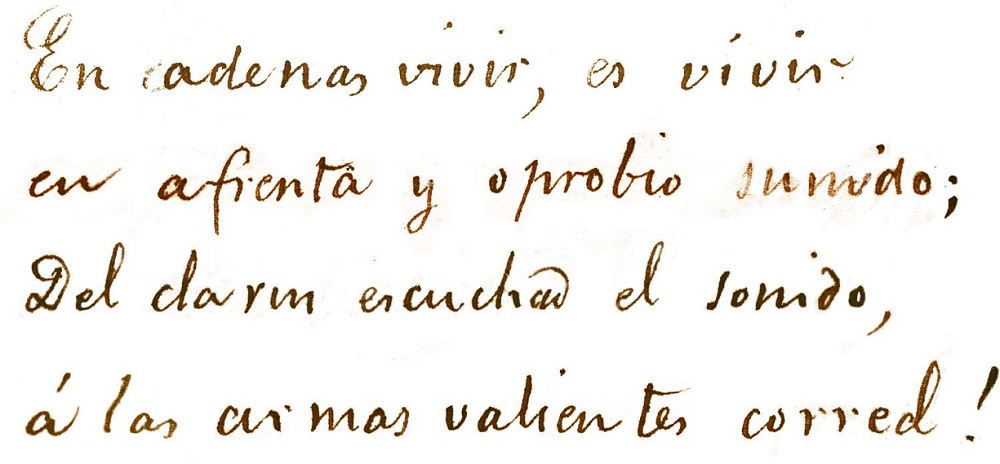 En cadenas vivir, es vivir
en afrenta y oprobio sumido;
Del clarin escuchad el sonido,
á las armas valientes corred!